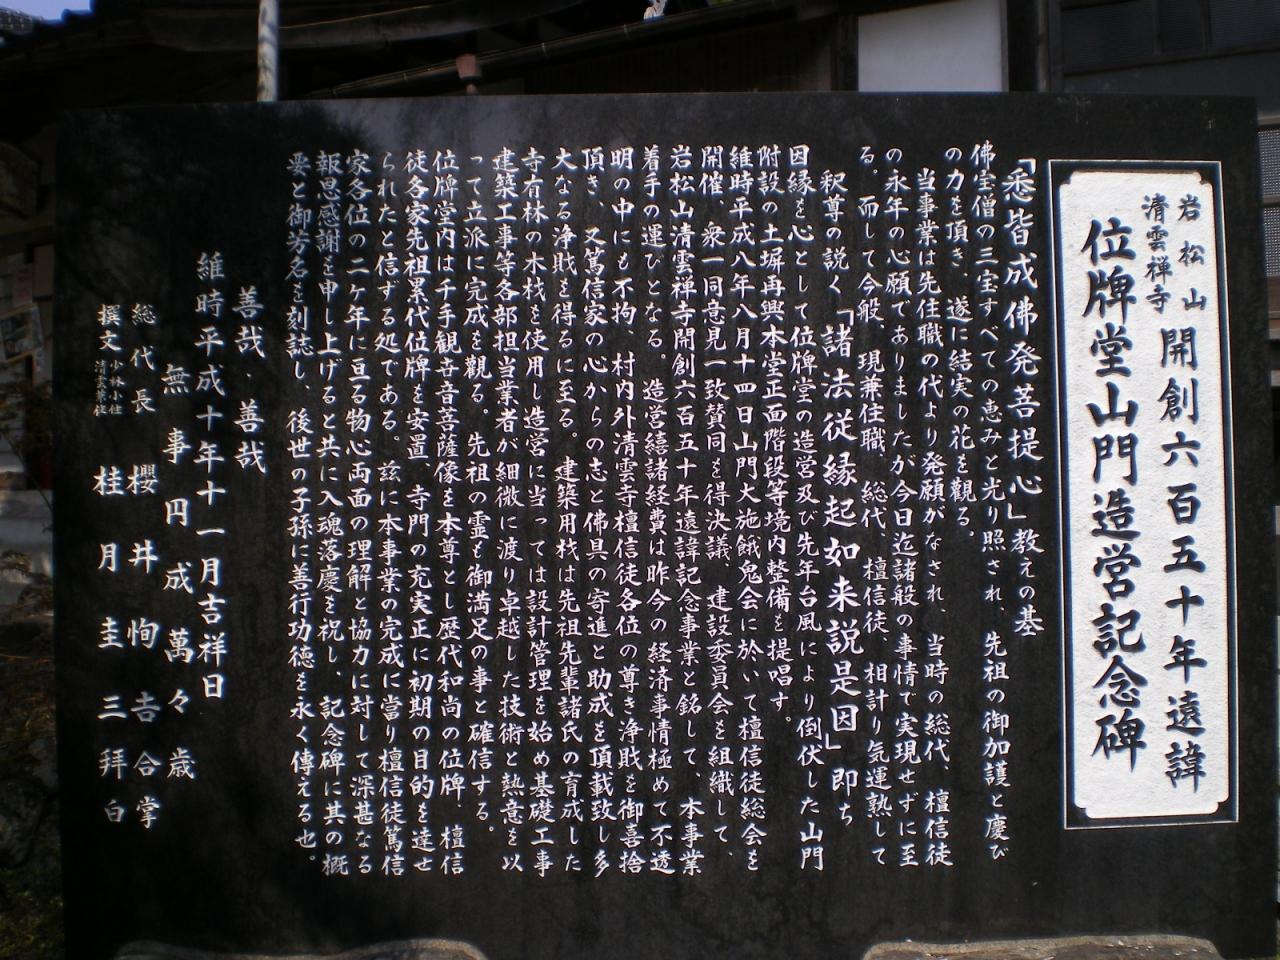 岩松山
清雲禅寺
開創六百五十年遠諱
位牌堂山門造営記念碑
「悉皆成佛発菩提心」教えの基
佛宝僧の三宝すべての恵みと光り照され、先祖の御加護と慶び
の力を頂き、遂に結実の花を観る。
当事業は先住職の代より発願がなされ、当時の総代、檀信徒
の永年の心願でありましたが今日迄諸般の事情で実現せずに至
る。而して今般、現兼住職、総代、檀信徒、相計り気運熟して
釈尊の説く「諸法従縁起如来説是因」即ち
因縁を心として位牌堂の造営及び先年台風により倒伏した山門
附設の土塀再興本堂正面階段等境内整備を提唱。
維時平成八年八月十四日山門大施餓鬼会に於いて檀信徒総会を
開催、衆一同意見一致賛同を得決議、建設委員会を組織して、
岩松山清雲禅寺開創六百五十年遠諱記念事業と銘して、本事業
着手の運びとなる。造営繕諸経費は昨今の経済事情極めて不透
明の中にも不拘、村内外清雲寺檀信徒各位の尊き浄財を御喜捨
頂き、又篤信家の心からの志と佛具の寄進と助成を頂載致し多
大なる浄財を得るに至る。建築用材は先祖先輩諸氏の育成した
寺有林の木材を使用し造営に当っては設計管理を始め基礎工事
建築工事等各部担当業者が細微に渡り卓越した技術と熱意を以
って立派に完成を観る。先祖の霊も御満足の事と確信する。
位牌堂内は千手観音菩薩像を本尊とし歴代和尚の位牌、檀信
徒各家先祖累代位牌を安置、寺門の充実正に初期の目的を達せ
られたと信ずる処である。茲に本事業の完成に當り檀信徒篤信
家各位の二ヶ年に亘る物心両面の理解と協力に対して深甚なる
報恩感謝を申し上げると共に入魂落慶を祝し、記念碑に其の概
要と御芳名を刻誌し、後世の子孫に善行功徳を永く傳える也。
善哉、善哉
維時平成十年十一月吉祥日
無事円成萬々歳
総代長 櫻井恂吉合掌
撰文 少林小住 清雲兼住 桂月圭三拝白